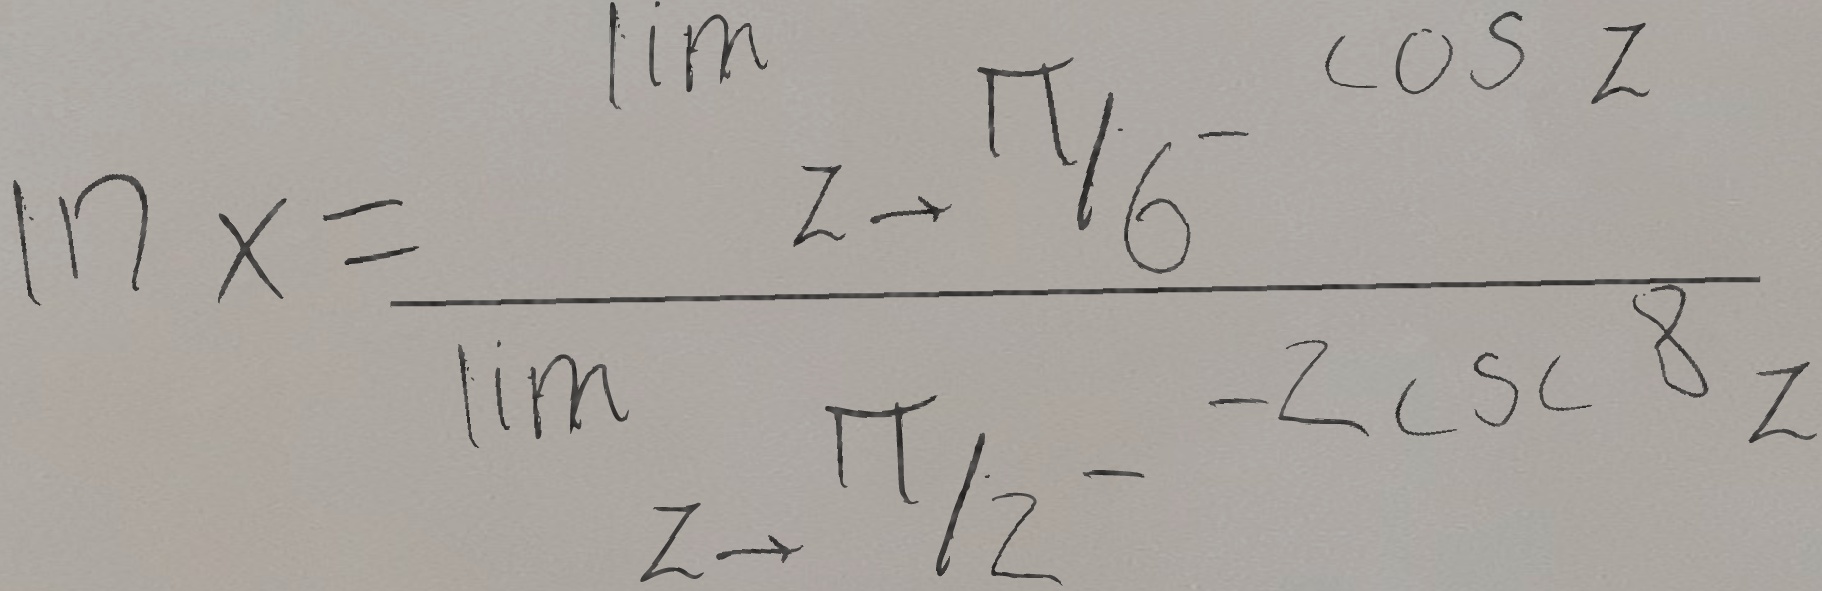 ln x = \frac{\lim_{z \to \pi/6^-} \cos z}{\lim_{z \to \pi/2^-} -2 \csc^8 z}